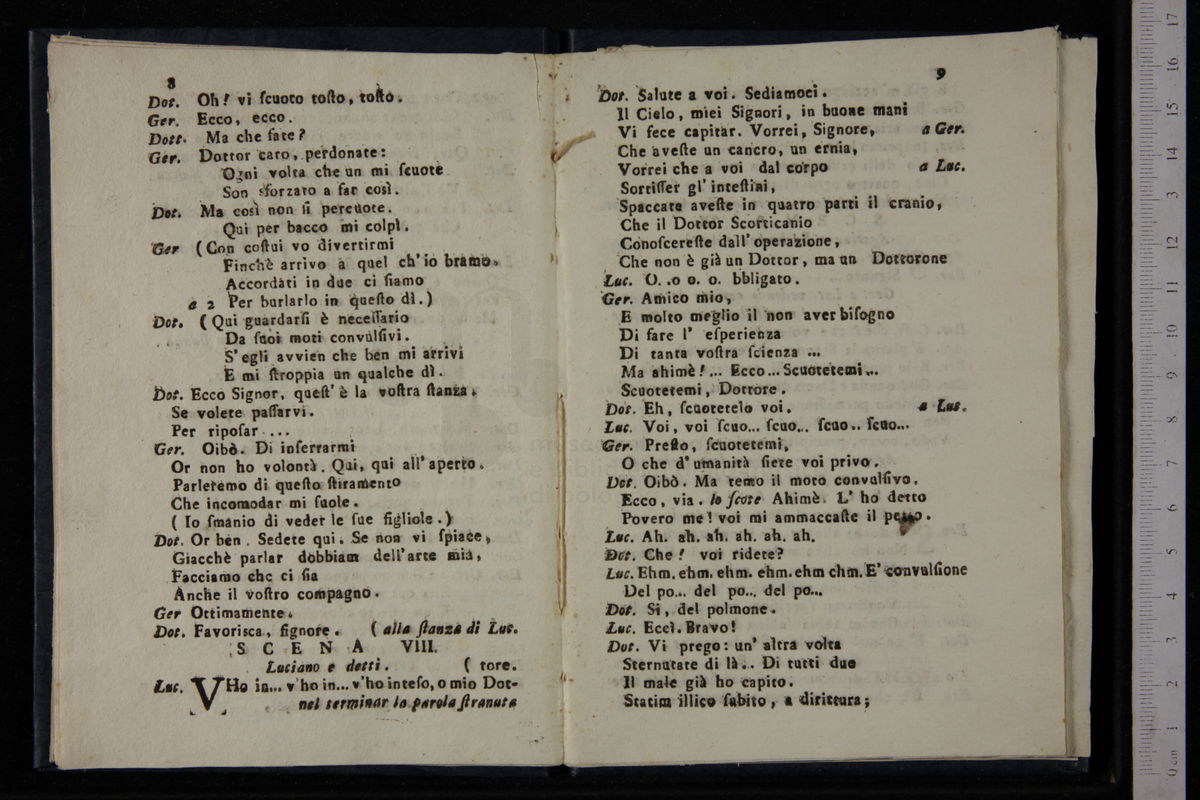 8
Dot. Oh! vi ſcuoto toſto, toſto.
Ger. Ecco, ecco.
Dott. Ma che fate?
Ger. Dottor caro, perdonate:
Ogni volta che un mi ſcuote
Son sforzato a far così.
Dot. Ma così non ſi percuote.
Qui per bacco mi colpì.
Ger (Con coſtui vo divertirmi
Finchè arrivo a quel ch'io bramo.
Accordati in due ci ſiamo
a 2 Per burlarlo in queſto dì.)
Dot. (Qui guardarſi è neceſſario
Da ſuoi moti convulſivi.
S'egli avvien che ben mi arrivi
E mi ſtroppia un qualche dì.
Dot. Ecco Signor, queſt'è la voſtra ſtanza.
Se volete paſſarvi.
Per ripoſar ....
Ger. Oibò. Di inſerrarmi
Or non ho volontà. Qui, qui all'aperto.
Parleremo di queſto ſtiramento
Che incomodar mi ſuole.
( Io ſmanio di veder le ſue figliole.)
Dot. Or ben. Sedete qui. Se non vi ſpiace,
Giacchè parlar dobbiam dell'arte mia,
Facciamo che ci ſia
Anche il voſtro compagno.
Ger Ottimamente.
Dot. Favoriſca, ſignore. ( alla ſtanza di Luc.
SCENA VIII.
Luciano e detti. ( tore.
Luc. VHo in... v'ho in... v'ho inteſo, o mio Dot-
nel terminar la parola ſtranuta
9
Dot. Salute a voi. Sediamoci.
Il Cielo, miei Signori, in buone mani
Vi fece capitar. Vorrei, Signore, a Ger.
Che aveſte un cancro, un ernia,
Vorrei che a voi dal corpo a Luc.
Sortiſſer gl'inteſtini,
Spaccate aveſte in quatro parti il cranio,
Che il Dottor Scorticanio
Conoſcereſte dall'operazione,
Che non è già un Dottor, ma un Dottorone
Luc. O. .o o. o. bbligato.
Ger. Amico mio,
E molto meglio il non aver biſogno
Di fare l' eſperienza
Di tanta voſtra ſcienza ...
Ma ahimè!... Ecco... Scuotetemi...
Scuotetemi, Dottore.
Dot. Eh, ſcuotetelo voi. a Luc.
Luc. Voi, voi ſcuo... ſcuo... ſcuo.. ſcuo...
Ger. Preſto, ſcuotetemi,
O che d'umanità ſiete voi privo.
Dot. Oibò. Ma temo il moto convulſivo.
Ecco, via. lo ſcote Ahimè. L'ho detto
Povero me! voi mi ammaccaſte il petto.
Luc. Ah. ah. ah. ah. ah. ah.
Dot. Che! voi ridete?
Luc. Ehm. ehm. ehm. ehm. ehm ehm. E' convulſione
Del po... del po... del po...
Dot. Sì, del polmone.
Luc. Eccì. Bravo!
Dot. Vi prego: un'altra volta
Sternutate di là.. Di tutti due
Il male già ho capito.
Statim illico ſubito, a dirittura;